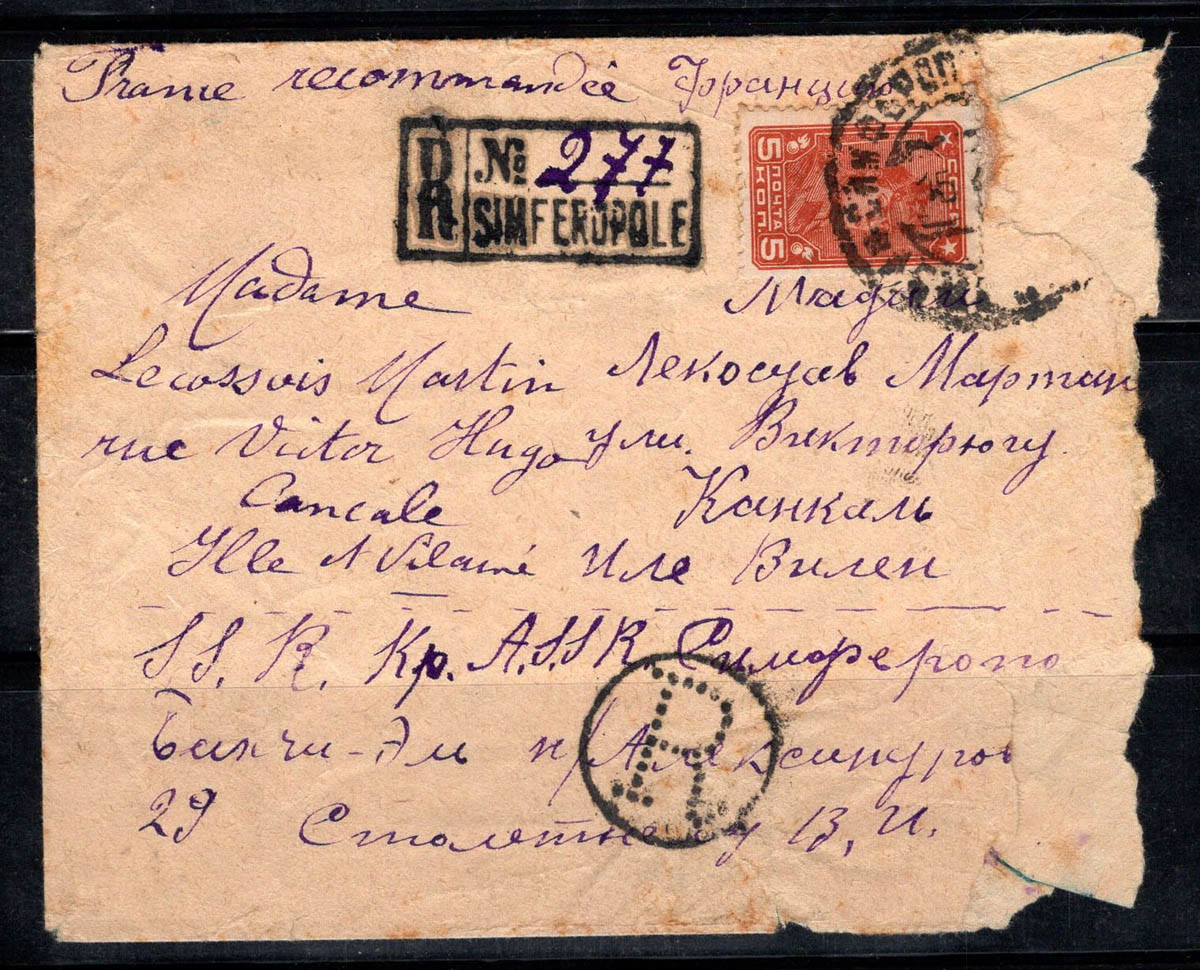 France recommandée Францию
R № 277
SIMFEROPOLE
5 КОП. ПОЧТА 5
СИМФЕРОП
Madame Мадам
Lecossois Martin Лекосуав Мартан
rue Victor Hugo ули. Викторюгу.
Cancale Канкаль
Ille et Vilaine Иле Вилен
S.S.R. Кр. A.S.S.R. Симферопо
Бахчи-Эли н/Александров
29 Столетнему В. И.
R